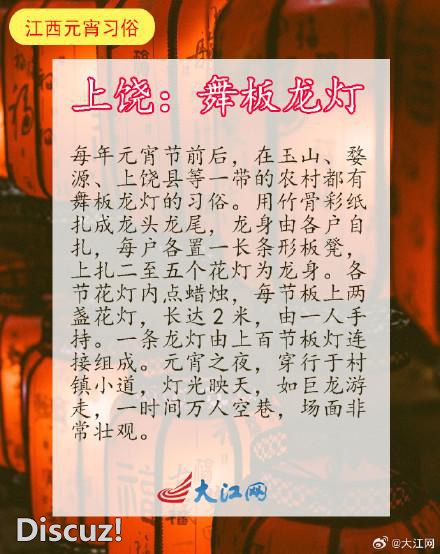 江西元宵习俗
上饶：舞板龙灯
每年元宵节前后，在玉山、婺
源、上饶县等一带的农村都有
舞板龙灯的习俗。用竹骨彩纸
扎成龙头龙尾，龙身由各户自
扎，每户各置一长条形板凳，
上扎二至五个花灯为龙身。各
节花灯内点蜡烛，每节板上两
盏花灯，长达2米，由一人手
持。一条龙灯由上百节板灯连
接组成。元宵之夜，穿行于村
镇小道，灯光映天，如巨龙游
走，一时间万人空巷，场面非
常壮观。
大江网
Discuz!
@大江网